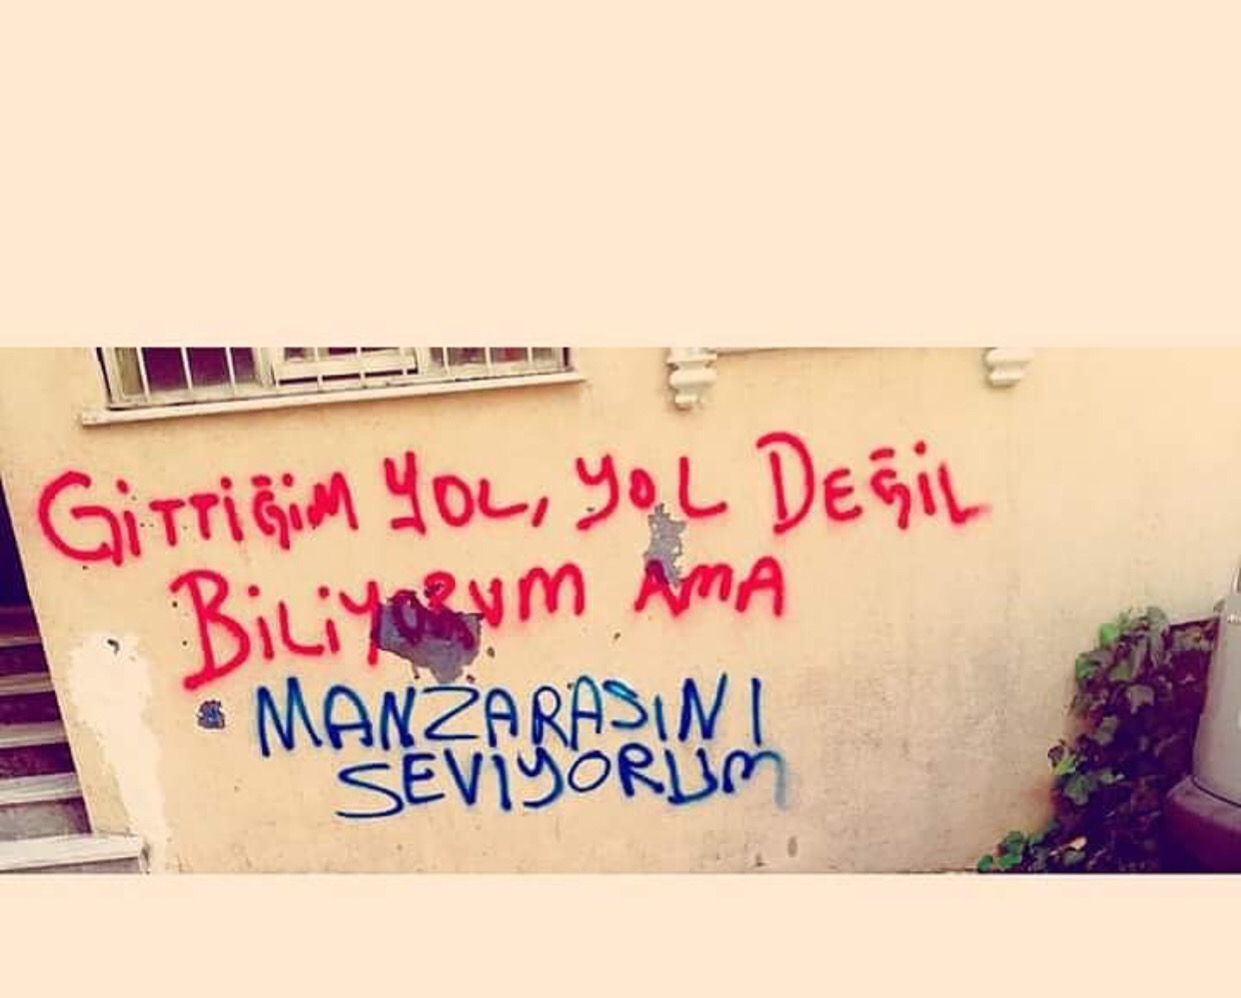 GİTTİĞİM YOL, YOL DEĞİL
BİLİYORUM AMA
MANZARASINI
SEVIYORUM